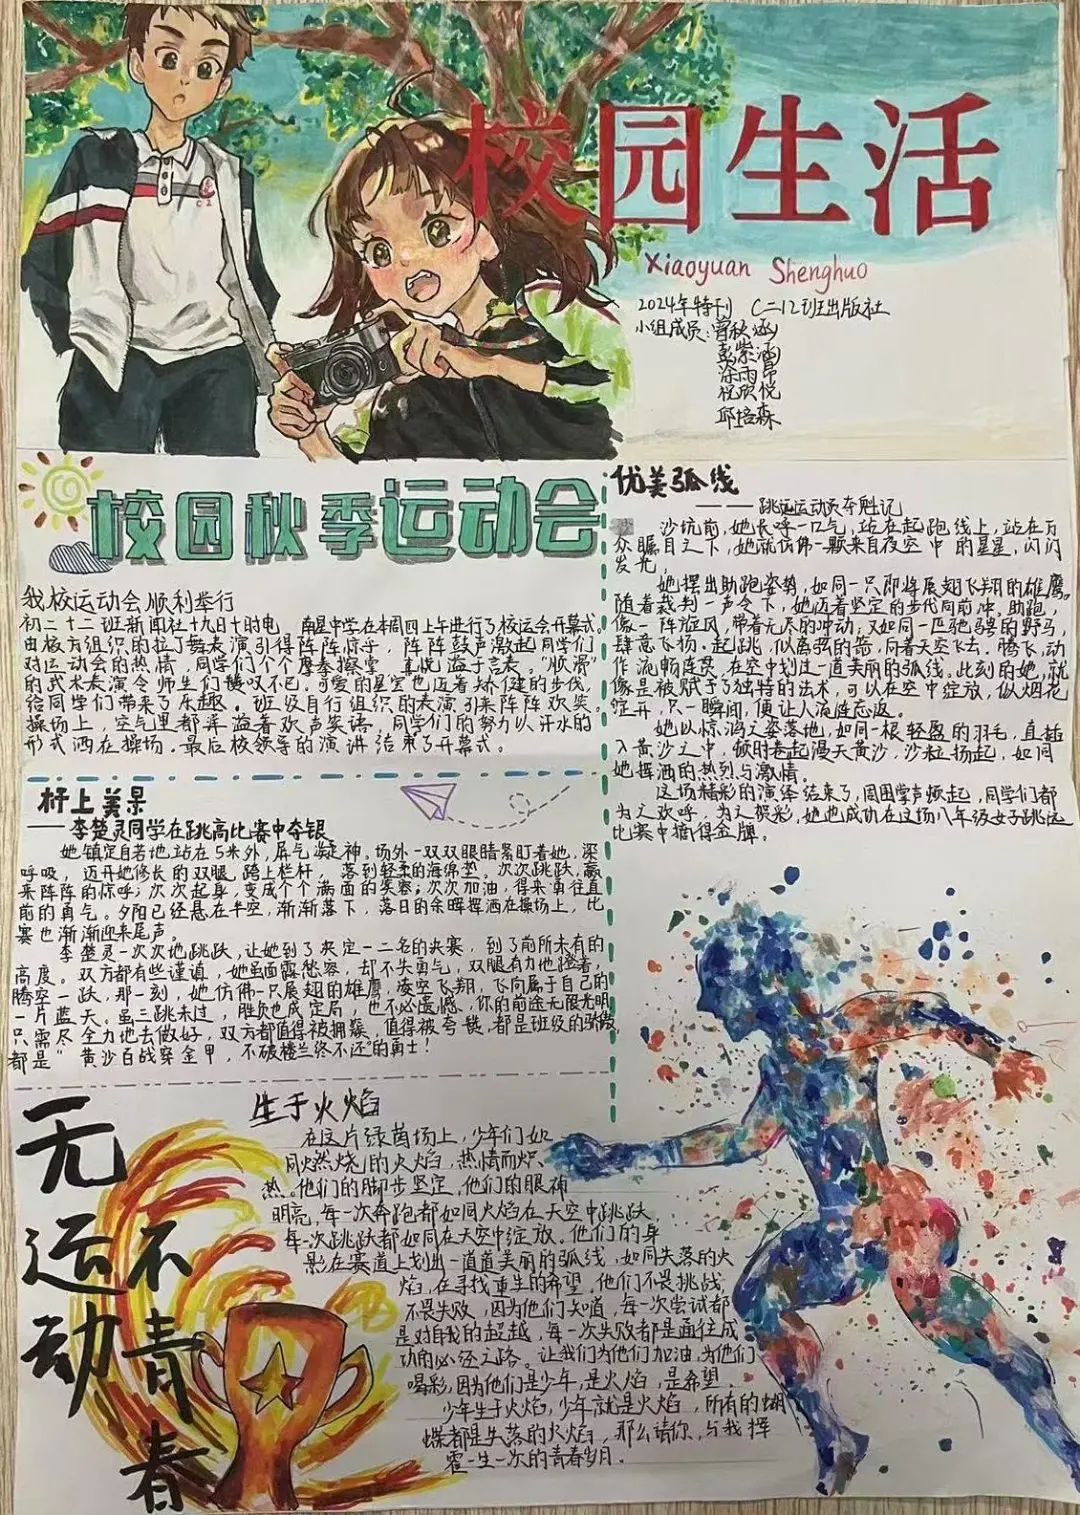 校园生活
Xiaoyuan Shenghuo
2024年特刊 C二12班出版社
小组成员:曾秋涵
彭紫涵
涂雨昂
祝欣悦
邱培森
校园秋季运动会
我校运动会顺利举行
初二十二班新闻社十九日十时电 南星中学在本周四上午进行了校运会开幕式。
由校方组织的拉丁舞表演引得阵阵惊呼,阵阵鼓声激起同学们
对运动会的热情,同学们个个摩拳擦掌 喜悦溢于言表。"顺滑"
的武术表演令师生们赞叹不已。可爱的星宝也迈着矫健的步伐,
给同学们带来了乐趣。班级自行组织的表演引来阵阵欢笑。
操场上,空气里都洋溢着欢声笑语,同学们的努力以汗水的
形式洒在操场。最后校领导的演讲结束了开幕式。
杆上美景
——李楚灵同学在跳高比赛中夺银
她镇定自若地站在5米外,屏气凝神。场外一双双眼睛紧盯着她,深
呼吸,迈开她修长的双腿,跨上栏杆,落到轻柔的海绵垫。次次跳跃,赢
来阵阵的惊呼;次次起身,变成个个满面的笑容;次次加油,得来勇往直
前的勇气。夕阳已经悬在半空,渐渐落下,落日的余晖挥洒在操场上,比
赛也渐渐迎来尾声。
李楚灵一次次地跳跃,让她到了决定一二名的决赛,到了前所未有的
高度。双方都有些谨慎,她虽面露愁容,却不失勇气,双腿有力地蹬着,
腾空一跃,那一刻,她仿佛一只展翅的雄鹰,凌空飞翔,飞向属于自己的
一片蓝天。虽三跳未过,胜负也成定局,也不必遗憾,你的前途无限光明
只需尽全力地去做好,双方都值得被拥簇,值得被夸赞,都是班级的骄傲
都是"黄沙百战穿金甲,不破楼兰终不还"的勇士!
优美弧线
——跳远运动员夺魁记
沙坑前,她长呼一口气,站在起跑线上,站在万
众瞩目之下,她就仿佛一颗来自夜空中的星星,闪闪
发光,
她摆出助跑姿势,如同一只即将展翅飞翔的雄鹰。
随着裁判一声令下,她迈着坚定的步伐向前冲。助跑,
像一阵旋风,带着无尽的冲动;又如同一匹驰骋的野马,
肆意飞扬。起跳,似离弦的箭,向着天空飞去。腾飞,动
作流畅连贯,在空中划过一道美丽的弧线。此刻的她,就
像是被赋予了独特的法术,可以在空中绽放,似烟花
绽开,只一瞬间,便让人流连忘返。
她以惊鸿之姿落地,如同一根轻盈的羽毛,直插
入黄沙之中,顿时卷起漫天黄沙,沙粒扬起,如同
她挥洒的热烈与激情。
这场精彩的演绎结束了,周围掌声频起,同学们都
为之欢呼,为之贺彩,她也成功在这场八年级女子跳远
比赛中摘得金牌。
无运动
不青春
生于火焰
在这片绿茵场上,少年们如
同燃烧的火焰,热情而炽
热。他们的脚步坚定,他们的眼神
明亮,每一次奔跑都如同火焰在天空中跳跃,
每一次跳跃都如同在天空中绽放。他们的身
影在赛道上划出一道道美丽的弧线,如同失落的火
焰,在寻找重生的希望。他们不畏挑战,
不畏失败,因为他们知道,每一次尝试都
是对自我的超越,每一次失败都是通往成
功的必经之路。让我们为他们加油,为他们
喝彩,因为他们是少年,是火焰,是希望。
少年生于火焰,少年就是火焰,所有的蝴
蝶都是失落的火焰,那么请你,与我挥
霍一生一次的青春岁月。